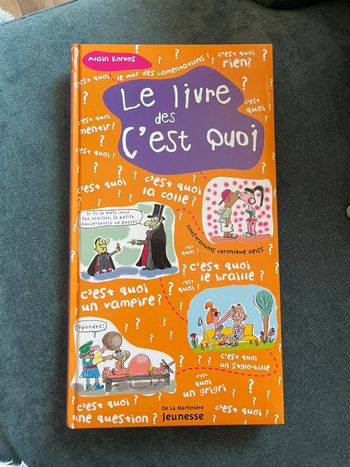 Alain Korkos
c'est quoi rien?
c'est quoi le mur des lamentations?
Le livre
des
C'est Quoi
c'est quoi
mentir?
c'est quoi
c'est quoi
la colle?
Si tu la mets sous
ton oreiller, la petite
chauve-souris va passer.
illustrations Véronique Deiss
c'est quoi
le braille?
c'est quoi
un vampire?
Répondez!
c'est quoi
un stylo-bille
c'est quoi
un grigri
c'est quoi
une question?
De La Martinière
Jeunesse